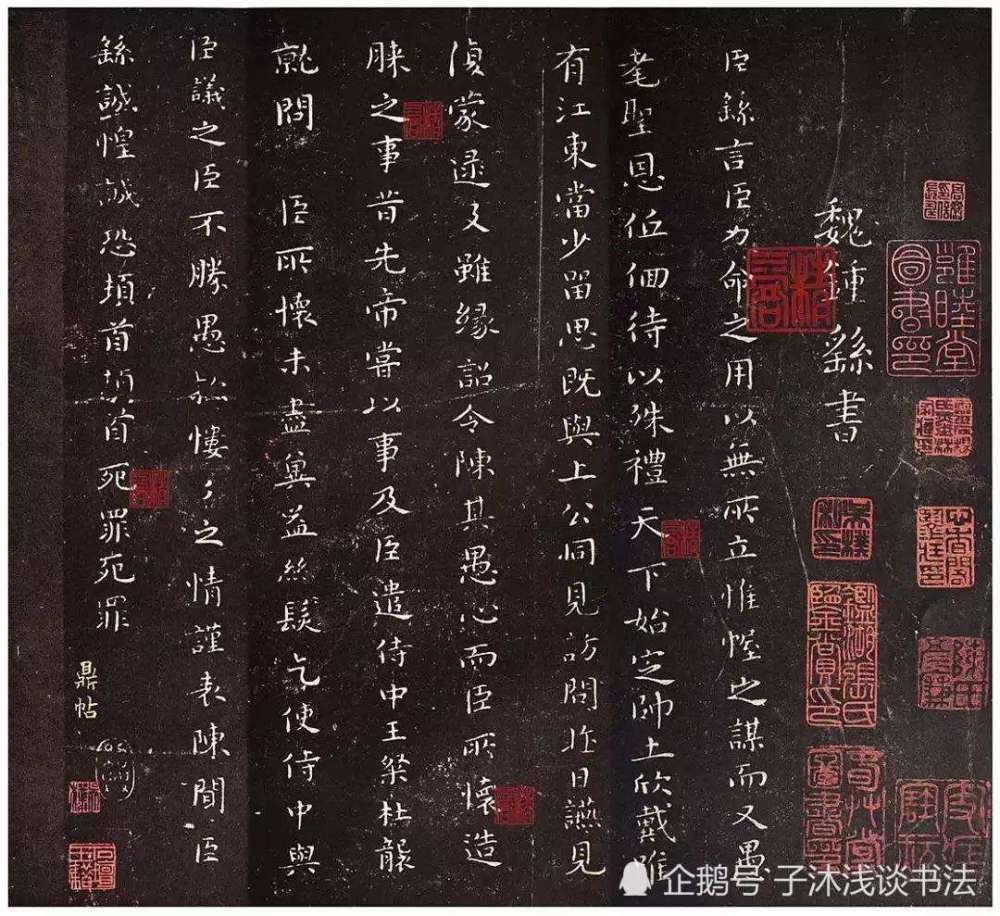 魏鍾繇書
臣繇言臣力命之用以無所立惟幄之謀而又愚
耄聖恩低佪待以殊禮天下始定帥土欣戴唯
有江東當少留思既與上公同見訪問昨日讌見
復蒙逮及雖緣詔令陳其愚心而臣所懷造
膝之事昔先帝嘗以事及臣遣侍中王粲杜襲
就問 臣所懷未盡奚益絲髮乞使侍中與
臣議之臣不勝愚款慺々之情謹表陳聞臣
繇誠惶誠恐頓首頓首死罪死罪
鼎帖
雍睦堂
圖書印
企鹅号 子沐浅谈书法